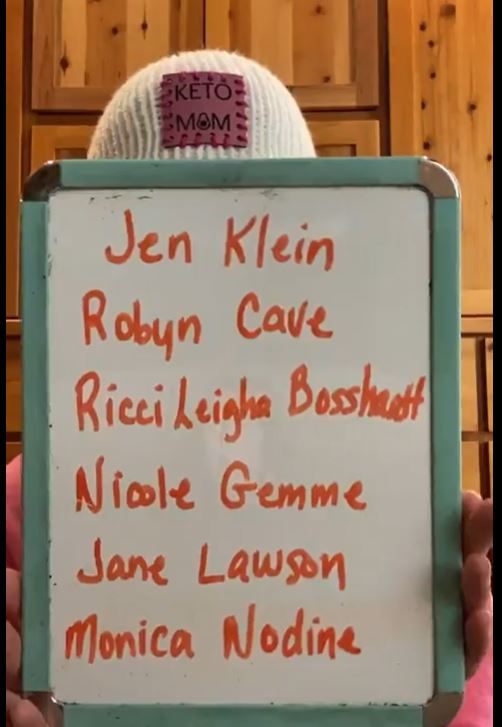 KETO
MOM
Jen Klein
Robyn Cave
Ricci Leigha Bosshardt
Nicole Gemme
Jane Lawson
Monica Nodine